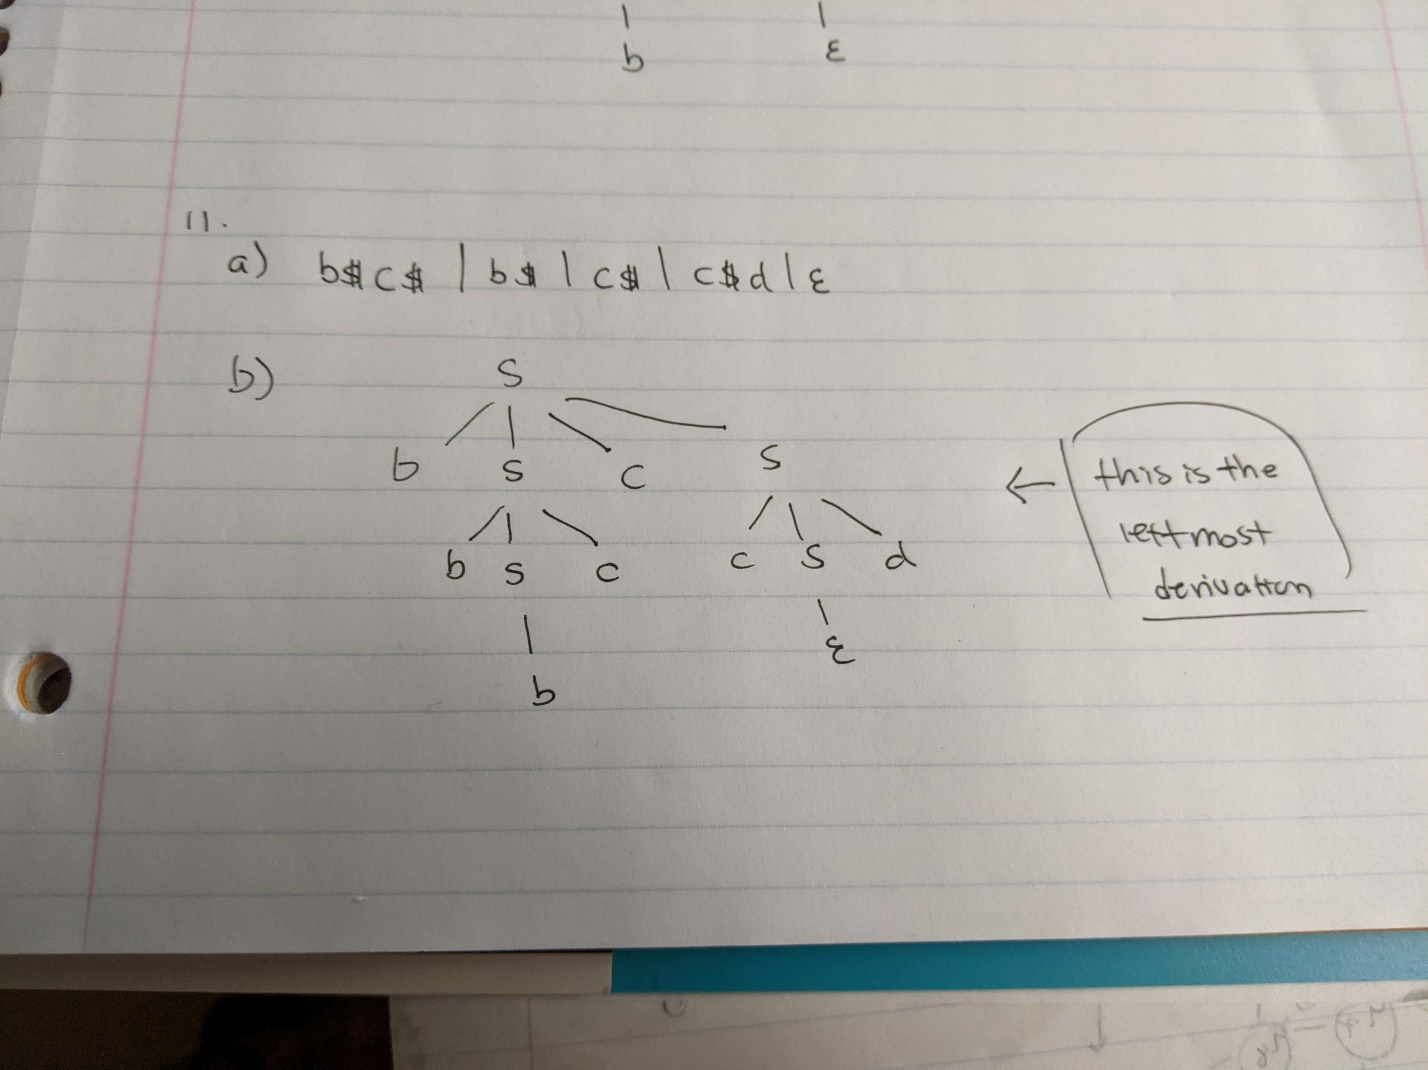 b ε
11.
a) b$c$ | b$ | c$ | c$d | ε
b) S
b S c S
b S c c S d
b ε
← this is the
leftmost
derivation